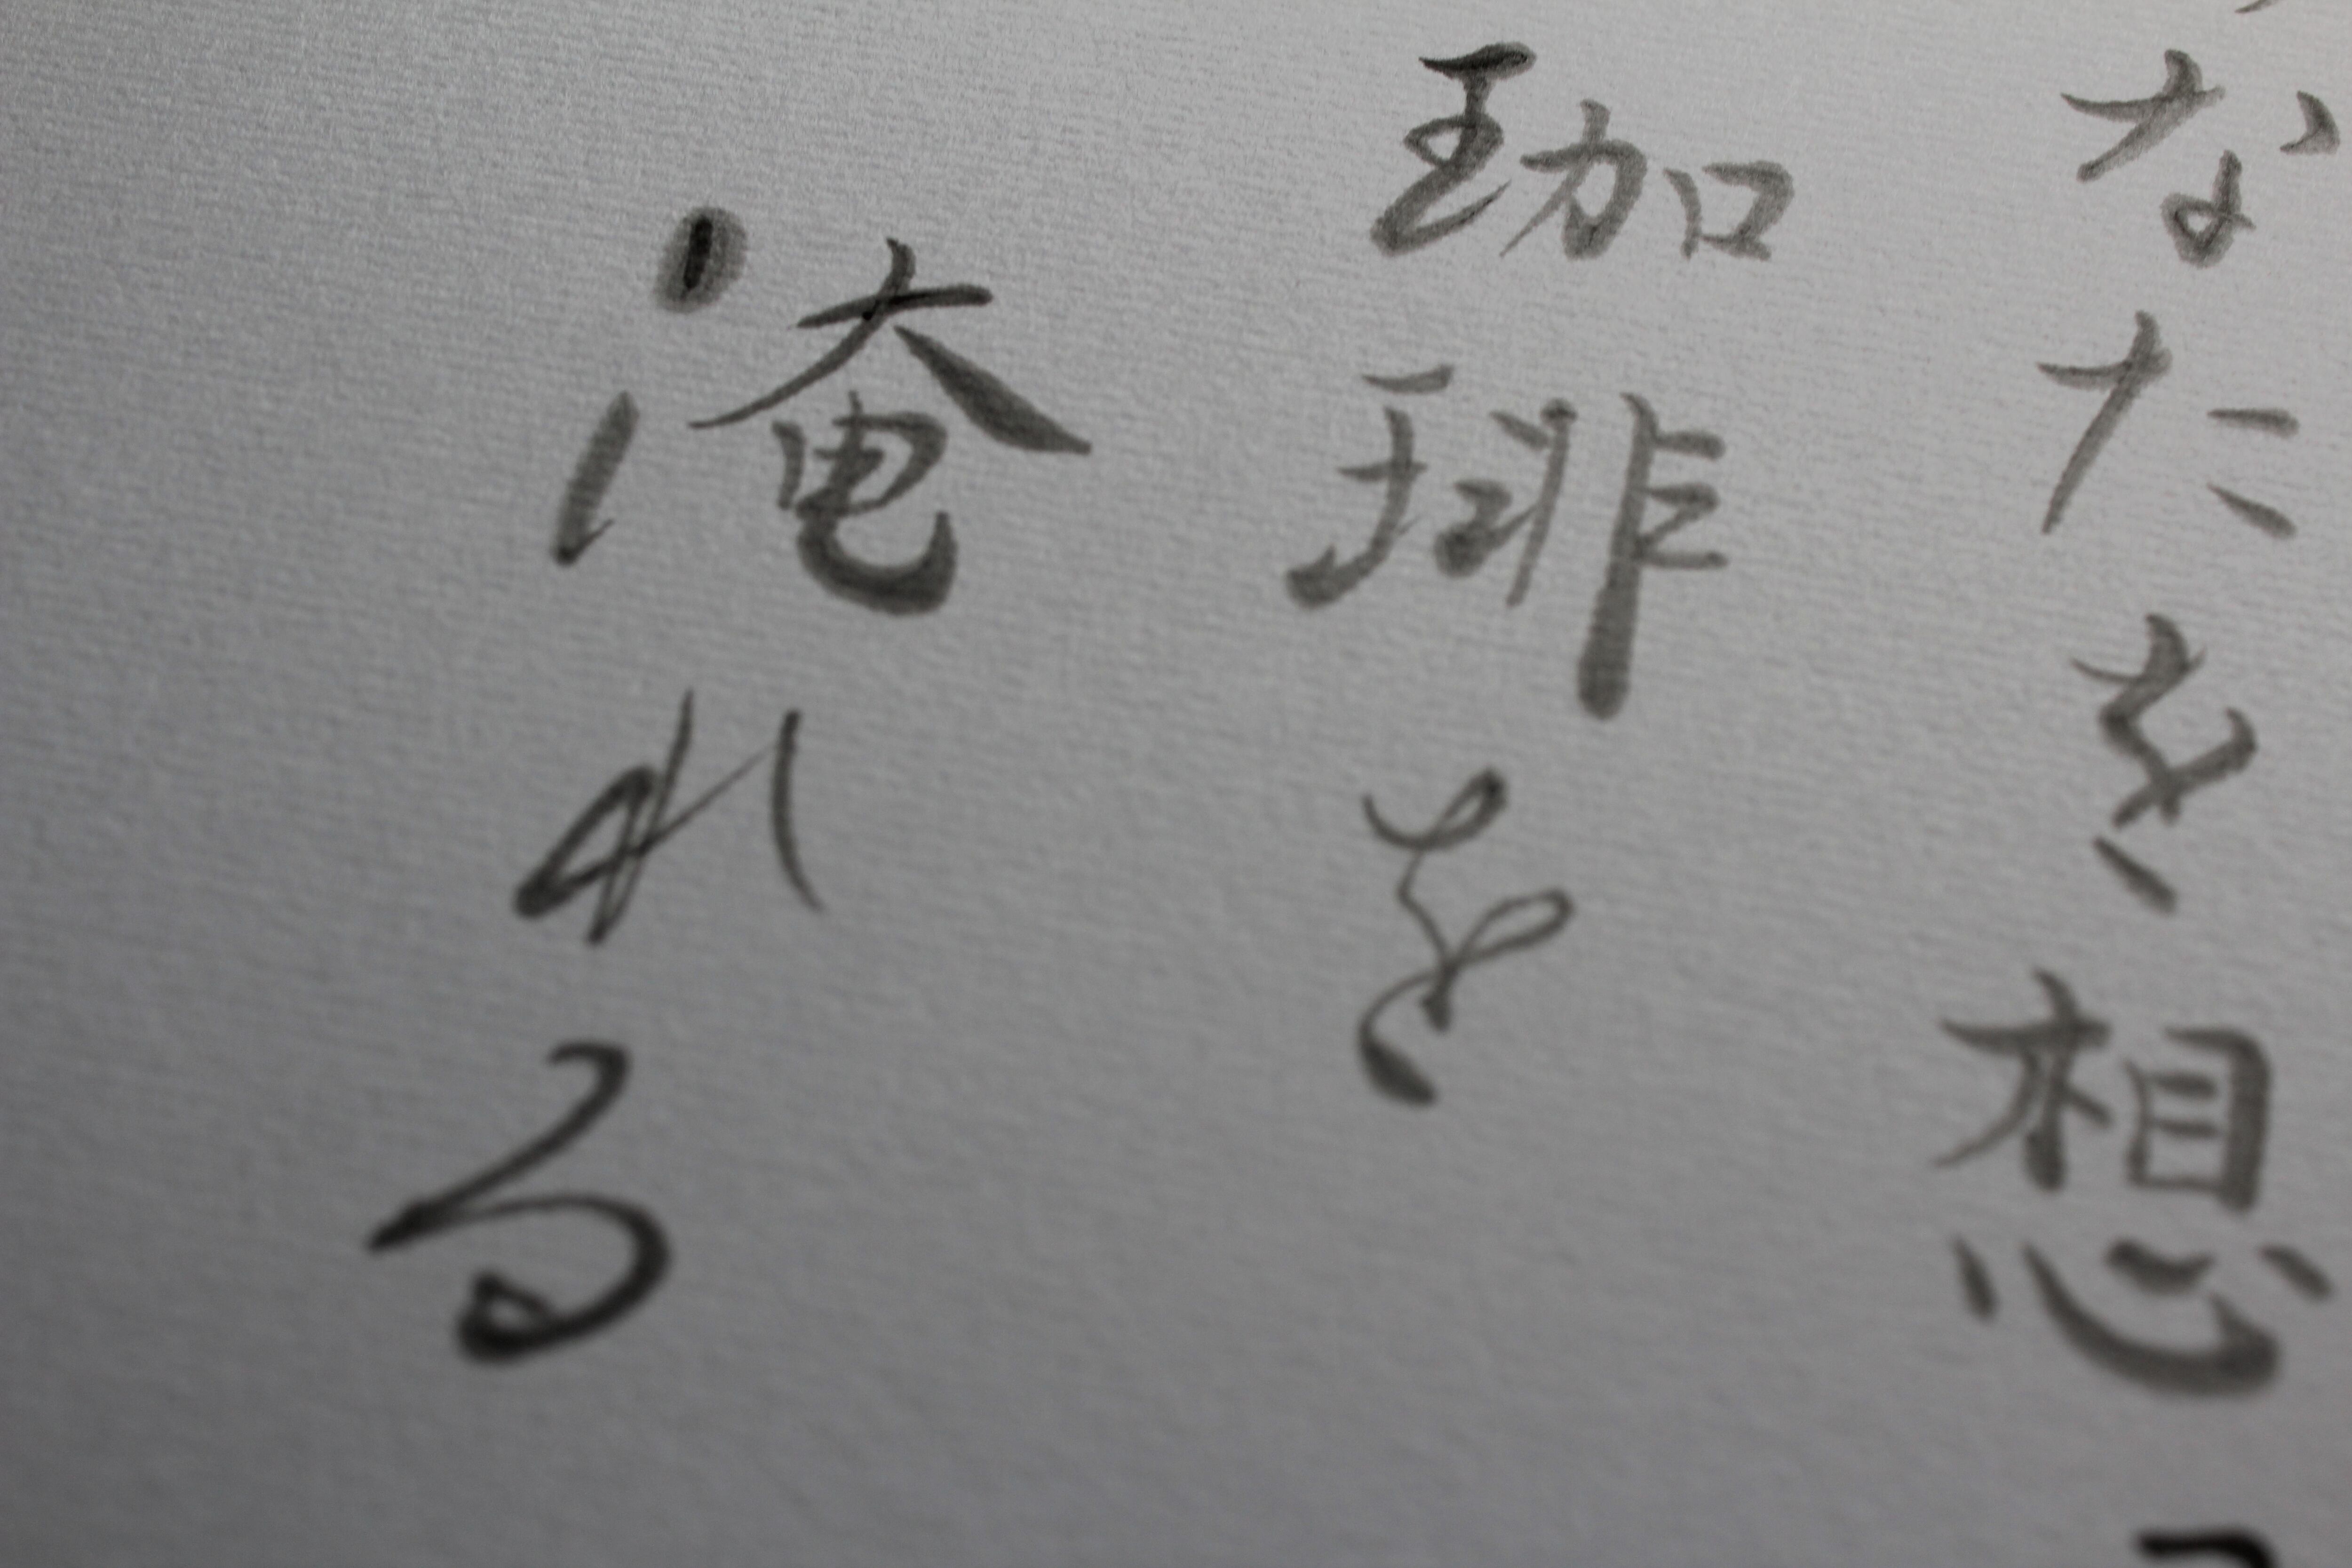 なたを想
珈琲を
淹れる